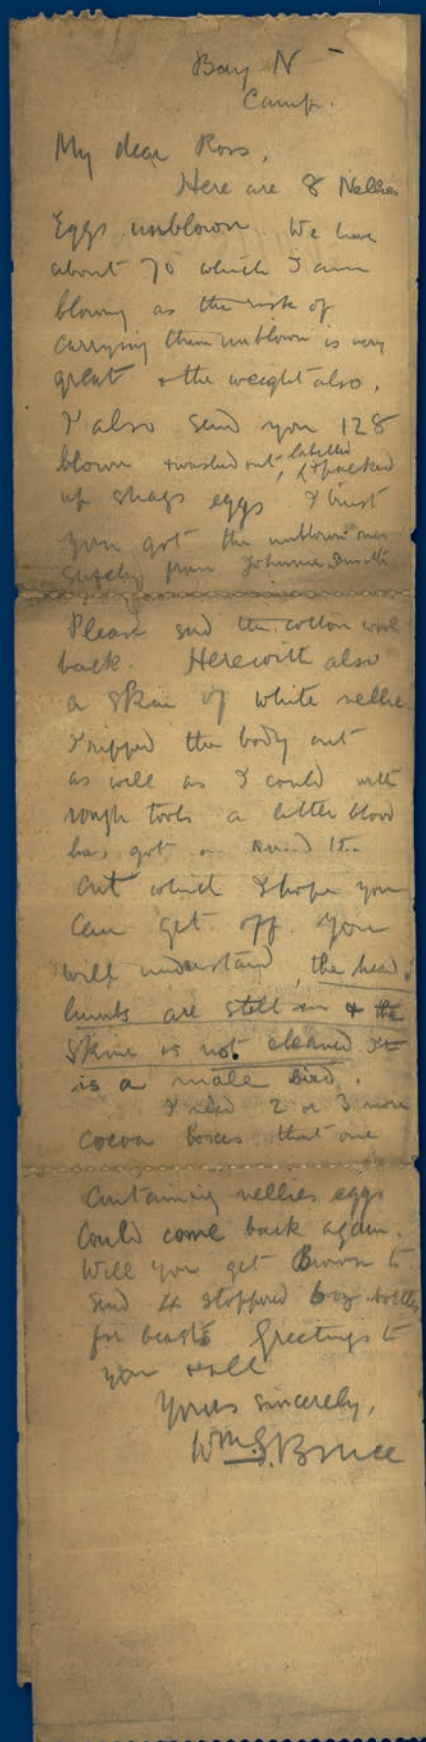 Bay N
Camp.
My dear Ross,
Here are 8 Nellies
Eggs unblown. We have
about 70 which I am
blowing as the risk of
carrying them unblown is very
great & the weight also.
I also send you 128
blown & washed out, labelled & packed
up shags eggs I trust
you got the unblown ones
safely from Johnnie Smith
Please send the cotton wool
back. Herewith also
a skin of white nellie
I ripped the body out
as well as I could with
rough tools a little blood
has got on
out which I hope you
can get off you
will understand, the head,
limbs are still in & the
skin is not cleaned It
is a male bird.
I need 2 or 3 more
cocoa boxes that one
containing nellies eggs
could come back again.
Will you get Brown to
send 4 stoppered 6 oz bottles
for beasts Greetings to
you & all
Yours sincerely,
Wm. S. Bruce